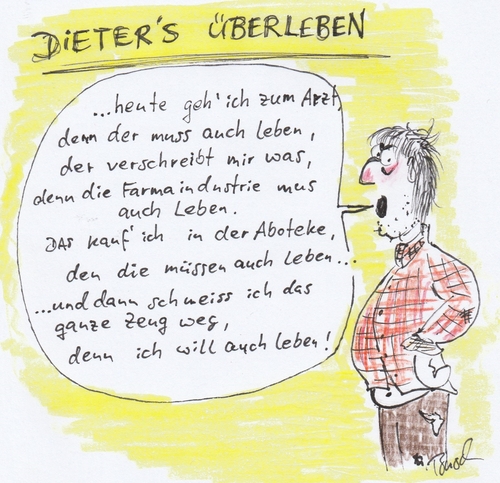 DiETER'S ÜBERLEBEN
...heute geh' ich zum Arzt,
denn der muss auch leben,
der verschreibt mir was,
denn die Farmaindustrie mus
auch Leben.
DAS kauf' ich in der Aboteke,
den die müssen auch Leben...
...und dann schmeiss ich das
ganze Zeug weg,
denn ich will auch leben!